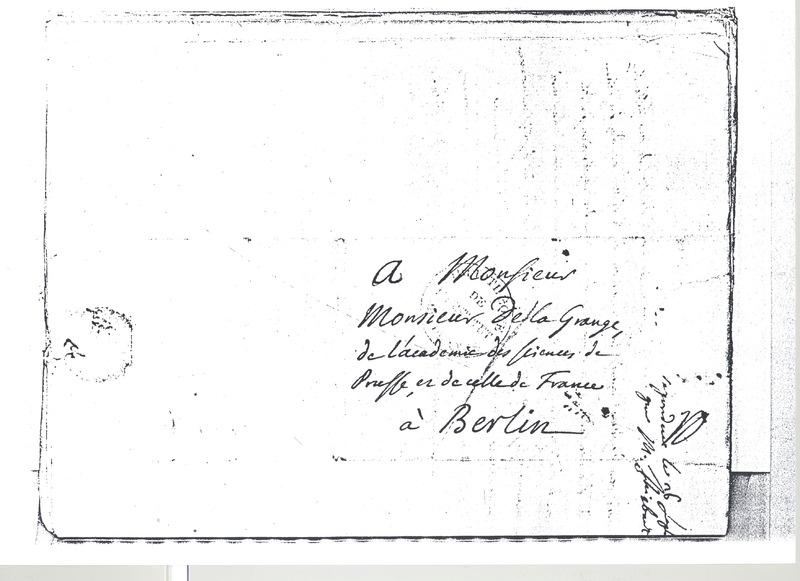 A Monsieur
Monsieur De la Grange,
de l'académie des sciences de
Prusse, et de celle de France
à Berlin
le 26
par M. Thiebaut